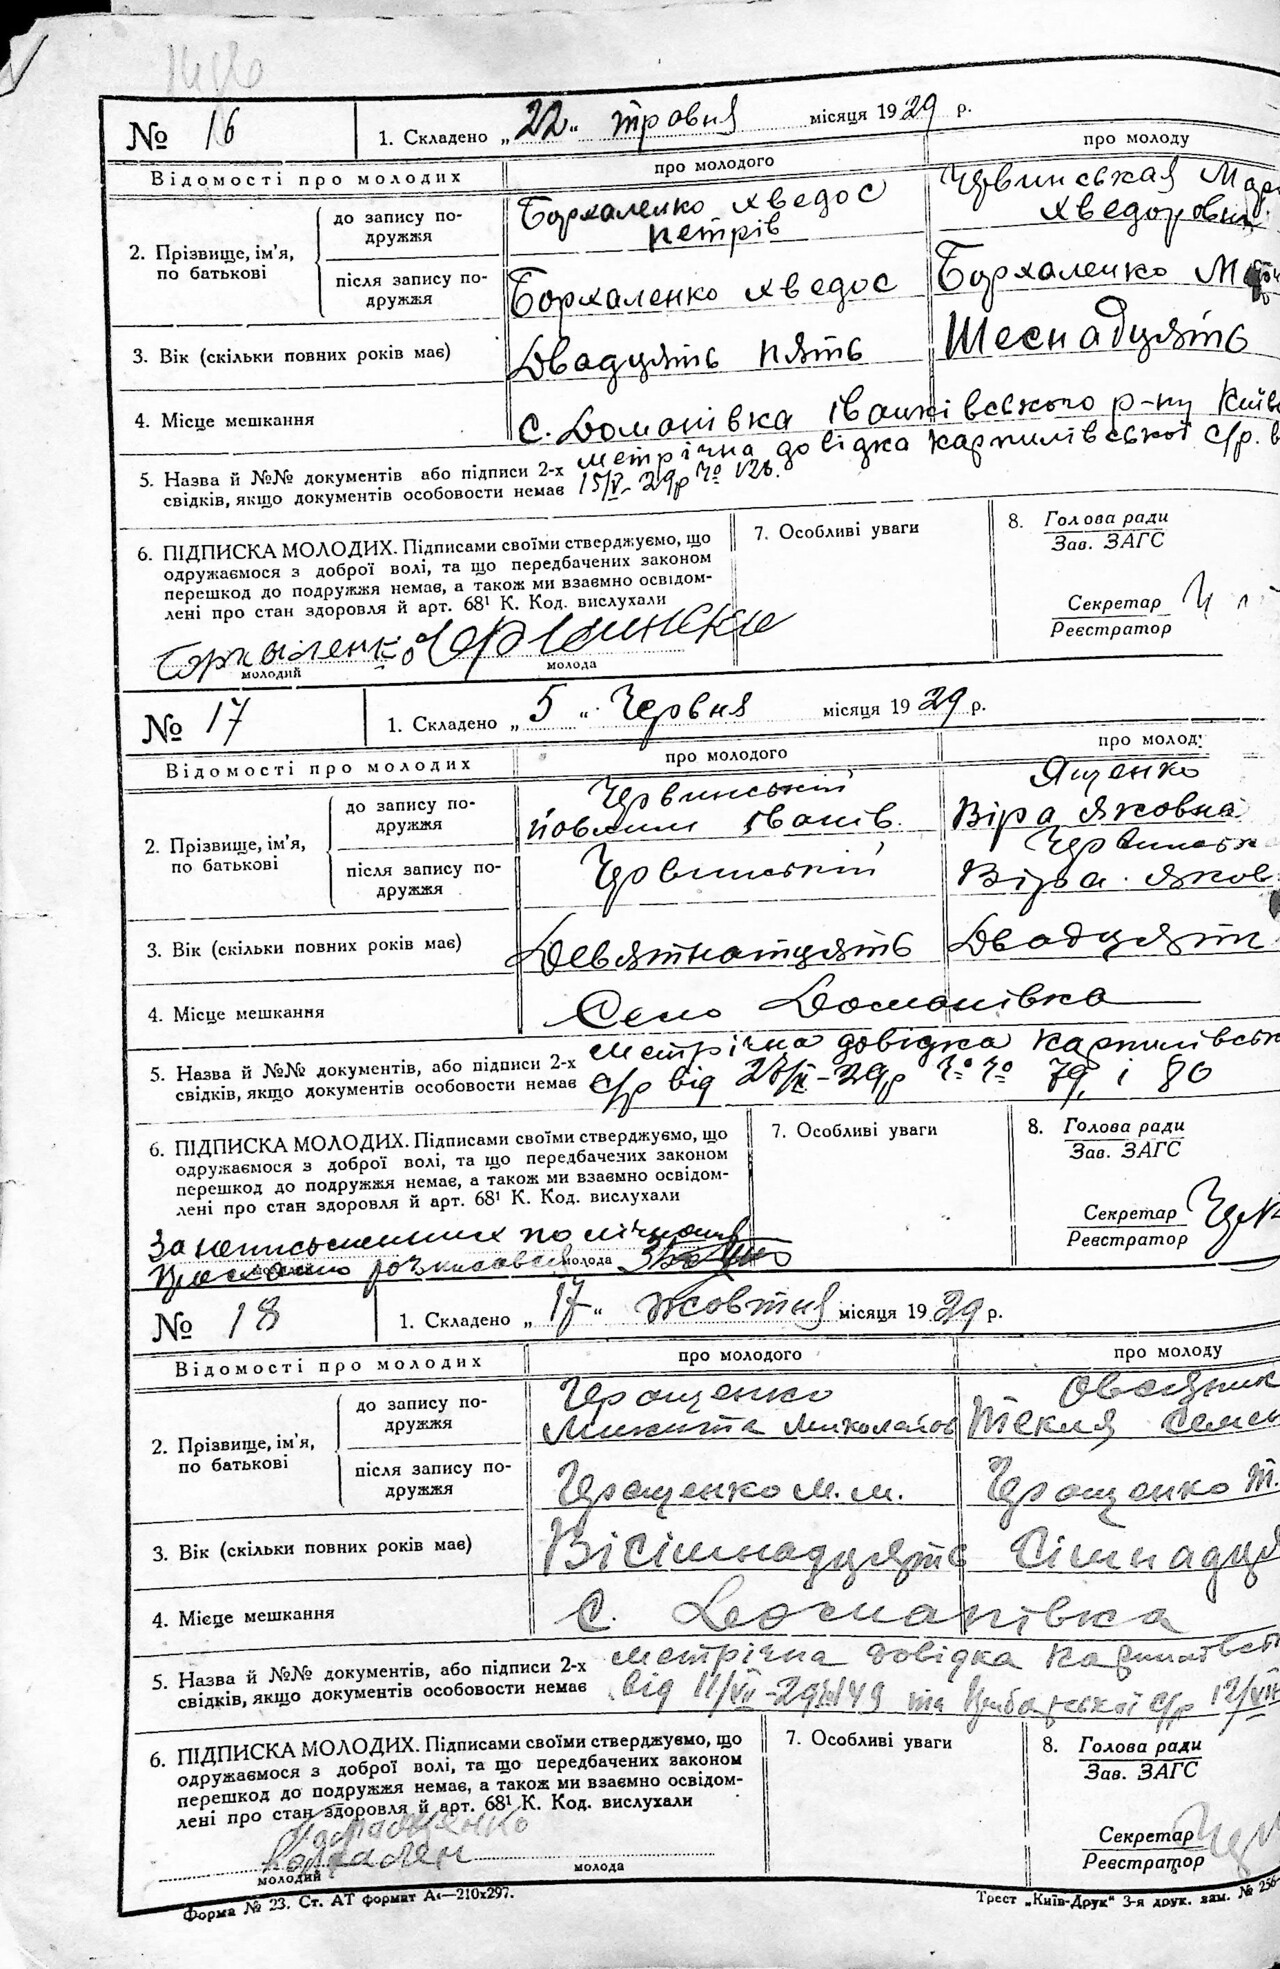 № 16
1. Складено „22" травня місяця 1929 р.
Відомості про молодих
про молодого
про молоду
2. Прізвище, ім'я, по батькові
до запису по-
дружжя
Бархаленко Хведос
петрів
Червинськая
Хведоровна
після запису по-
дружжя
Бархаленко Хведос
Бархаленко
3. Вік (скільки повних років має)
Двадцять пять
Шеснадцять
4. Місце мешкання
с. Домапівка Іванківського р-ну
5. Назва й №№ документів або підписи 2-х
свідків, якщо документів особовости немає
метрічна довідка карпилівської с/р.
15/V-29р № 126.
6. ПІДПИСКА МОЛОДИХ. Підписами своїми стверджуємо, що
одружаємося з доброї волі, та що передбачених законом
перешкод до подружжя немає, а також ми взаємно освідом-
лені про стан здоровля й арт. 68¹ К. Код. вислухали
молодий
молода
7. Особливі уваги
8. Голова ради
Зав. ЗАГС
Секретар
Реєстратор
№ 17
1. Складено „5" Червня місяця 1929 р.
Відомості про молодих
про молодого
про молод
2. Прізвище, ім'я,
по батькові
до запису по-
дружжя
Червинській
іванів.
Ященко
Віра Яковна
після запису по-
дружжя
Червинській
Віра
3. Вік (скільки повних років має)
Девятнатцять
Двадцять
4. Місце мешкання
Село Домапівка
5. Назва й №№ документів, або підписи 2-х
свідків, якщо документів особовости немає
метрічна довідка карпилівськ
с/р від -29р №№ 79 і 80
6. ПІДПИСКА МОЛОДИХ. Підписами своїми стверджуємо, що
одружаємося з доброї волі, та що передбачених законом
перешкод до подружжя немає, а також ми взаємно освідом-
лені про стан здоровля й арт. 68¹ К. Код. вислухали
За неписьменних
молода
7. Особливі уваги
8. Голова ради
Зав. ЗАГС
Секретар
Реєстратор
№ 18
1. Складено „17" жовтня місяця 1929 р.
Відомості про молодих
про молодого
про молоду
2. Прізвище, ім'я,
по батькові
до запису по-
дружжя
Геращенко
Микита Миколайов
Текля
після запису по-
дружжя
Геращенко М. М.
Геращенко Т.
3. Вік (скільки повних років має)
Вісімнадцять
Сімнадця
4. Місце мешкання
С. Домапівка
5. Назва й №№ документів, або підписи 2-х
свідків, якщо документів особовости немає
метрічна довідка
від та с/р
6. ПІДПИСКА МОЛОДИХ. Підписами своїми стверджуємо, що
одружаємося з доброї волі, та що передбачених законом
перешкод до подружжя немає, а також ми взаємно освідом-
лені про стан здоровля й арт. 68¹ К. Код. вислухали
молодий
молода
7. Особливі уваги
8. Голова ради
Зав. ЗАГС
Секретар
Реєстратор
Форма № 23. Ст. АТ формат А₄—210x297.
Трест „Київ-Друк" 3-я друк. зам. № 256-